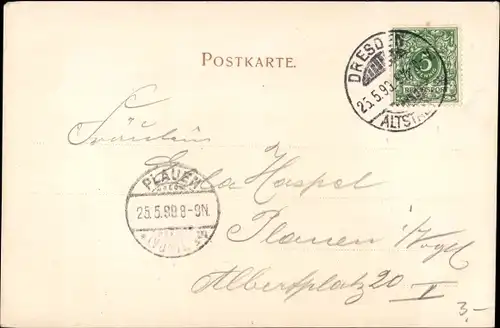 POSTKARTE.
DRESDEN
25.5.99
ALTSTADT
5
Fräulein
Haspel
PLAUEN
25.5.99.8-9N.
Plauen i/Vogtl
Albertplatz 20 I
3.-